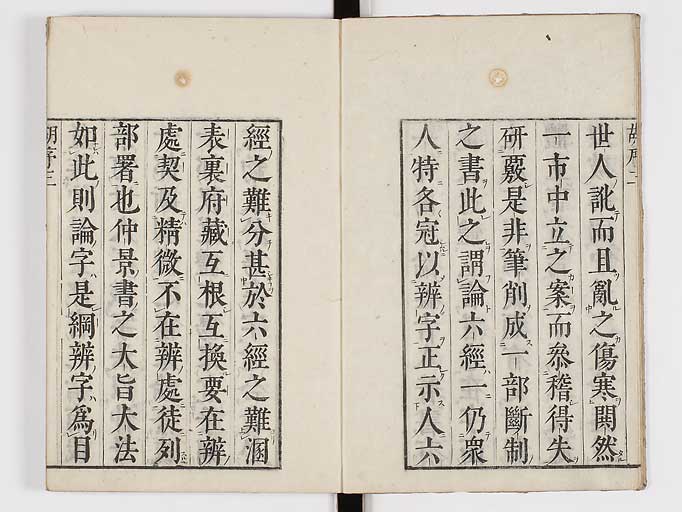 世人訛而且亂之傷寒閧然
一市中立之案而叅稽得失
研覈是非筆削成一部斷制
之書此之謂論六經一仍衆
人特各冠以辨字正示人六
經之難分甚於六經之難溷
表裏府藏互根互換要在辨
處契及精微不在辨處徒列
部署也仲景書之大旨大法
如此則論字是綱辨字爲目